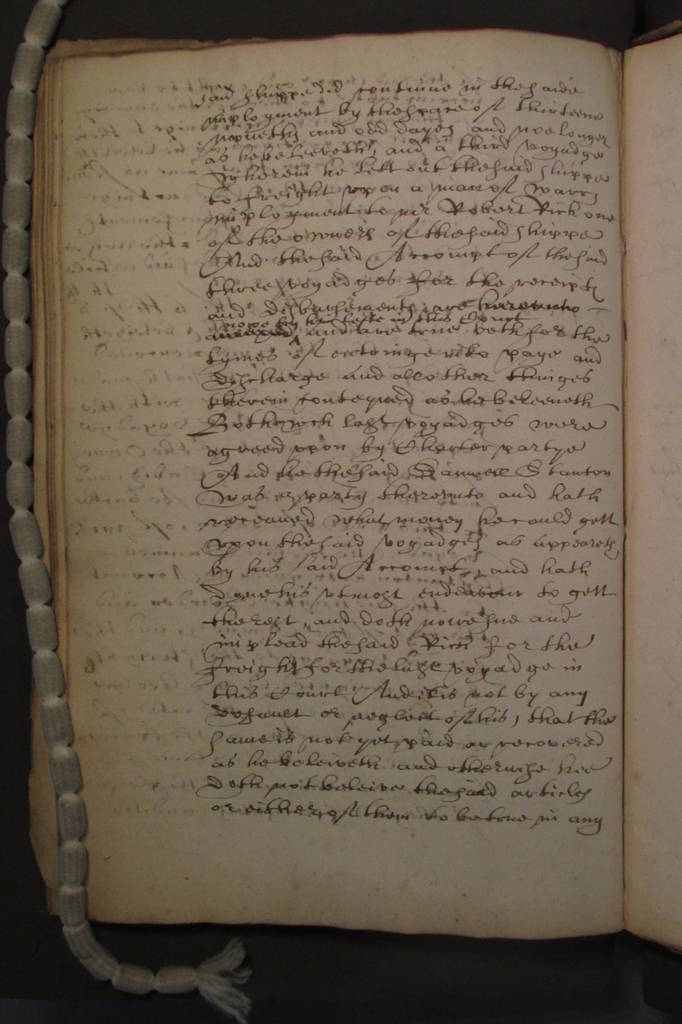 said shippe did continue in the said
imployment by the space of thirteene
moneths and odd dayes and noe longer
as hee beleeveth, and a third voyadge
wherein he lett out the said shippe
to freight upon a man of warrs
imployment to mr Robert Rich one
of the owners of the said shippe
And the said Accompt of the said
three voyadges for the receipts
and disbursements are hereunto
annexed and are true both for the
nowe by him lefte in this Court
tymes of entring into paye and
discharge and all other things
therein conteyned as hee beleeveth
Both wch last voyadges were
agreed upon by Charter partye
And he the said Samuell Stanton
was a party thereunto and hath
receaved what money he could gett
upon the said voyadges as appeareth
by his said Accompt, and hath
done his utmost endeavour to gett
the rest, and doth nowe sue and
implead the said Rich for the
freight for the last voyadge in
this Court And it is not by any
default or neglect of his, that the
same is not yet paid or recovered
as he beleiveth and otherwise hee
doth not beleive the said articles
or either of them to be true in any